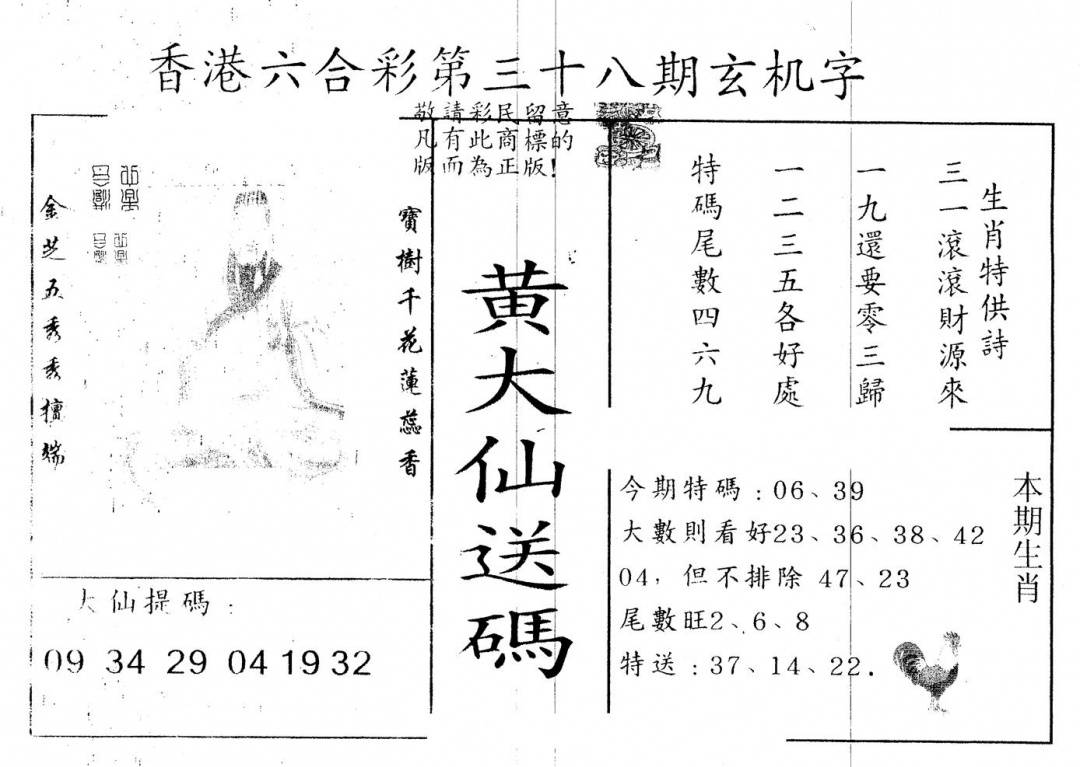 香港六合彩第三十八期玄机字
敬請彩民留意
凡有此商標的
版而為正版!
生肖特供詩
三一滾滾財源來
一九還要零三歸
一二三五各好處
特碼尾數四六九
黃大仙送碼
寶樹千花蓮蕊香
金芝五秀秀擅端
大仙提碼:
09 34 29 04 19 32
本期生肖
今期特碼:06、39
大數則看好23、36、38、42
04,但不排除 47、23
尾數旺2、6、8
特送:37、14、22.